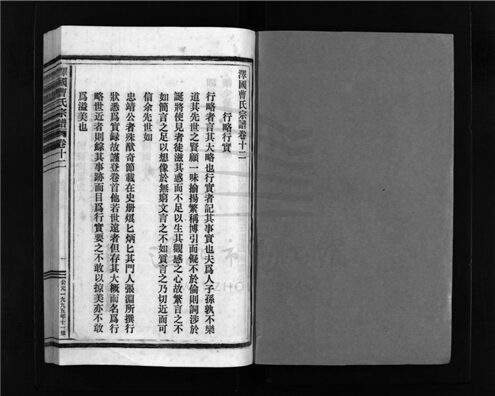 澤國曹氏宗譜卷十二
行略行實
行略者言其大略也行實者記其事實也夫爲人子孫孰不樂
道其先世之賢顧一味揄揚繁稱博引而儗不於倫則詞涉於
誕將使見者徒滋其惑而不足以生其觀感之心故繁言之不
如簡言之足以想像於無窮文言之不如質言之乃切近而可
信余先世如
忠靖公者殊猷奇節載在史册熀匕炳匕其門人張淵所撰行
狀悉爲實録故謹登卷首他若世遠者但存其大概而名爲行
略世近者則綜其事跡而目爲行實要之不敢以掠美亦不敢
爲溢美也
澤國曹氏宗譜
卷十二
一
公元一九九五年十一修